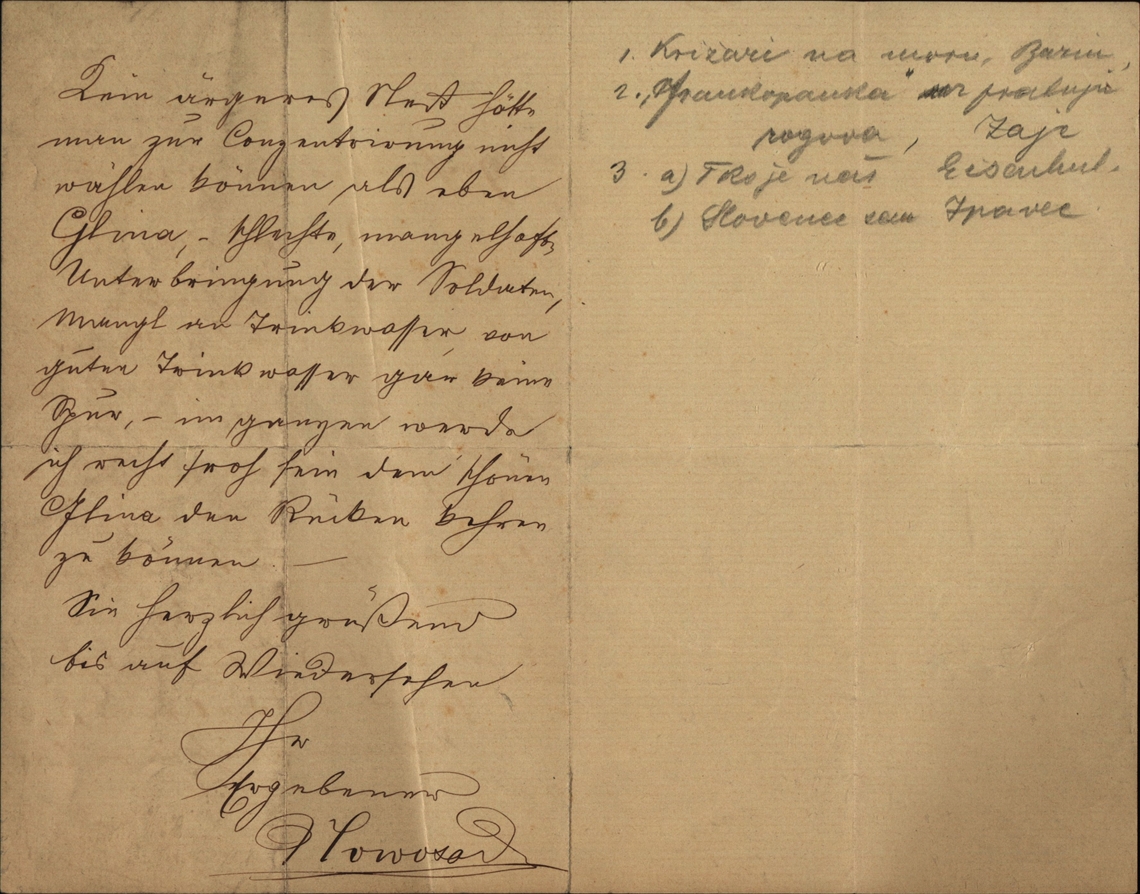 Kein ärgeres Nest hätte
man zur Conzentrirung nicht
wählen können als eben
Glina, – schlechte, mangelhafte
Unterbringung der Soldaten,
Mangl an Trinkwasser, von
guten Trinkwasser gar keine
Spur, – im ganzen werde
ich recht froh sein dem schönen
Glina den Rücken kehren
zu können. —
Sie herzlich grüßend
bis auf Wiedersehen
Ihr
Ergebener
Nowosad
1. Križari na moru,
2. „Frankopanka"
rogova, Zajc
3. a) Tko je naš Eisenhut.
b) Slovenec sam Ipavec